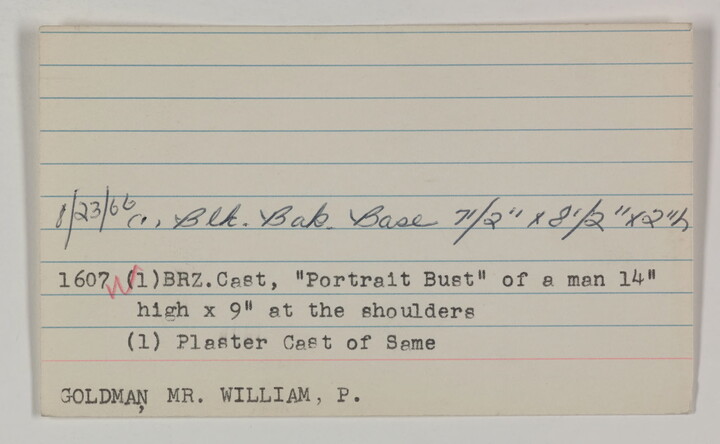 8/23/66 (1) Blk. Bak. Base 7 1/2" x 8 1/2" x 2" h
1607 W (1)BRZ.Cast, "Portrait Bust" of a man 14"
high x 9" at the shoulders
(1) Plaster Cast of Same
GOLDMAN, MR. WILLIAM, P.